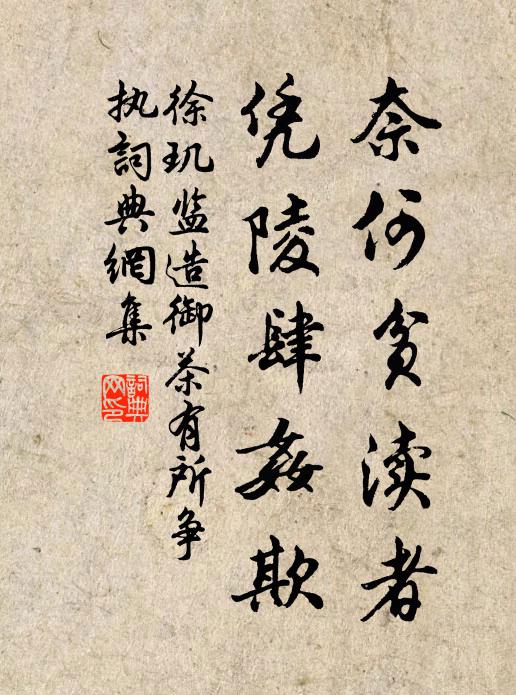 奈何贪渎者
凭陵肆姦欺
徐玑监造御茶有所争
执詞典網集
詞典网印